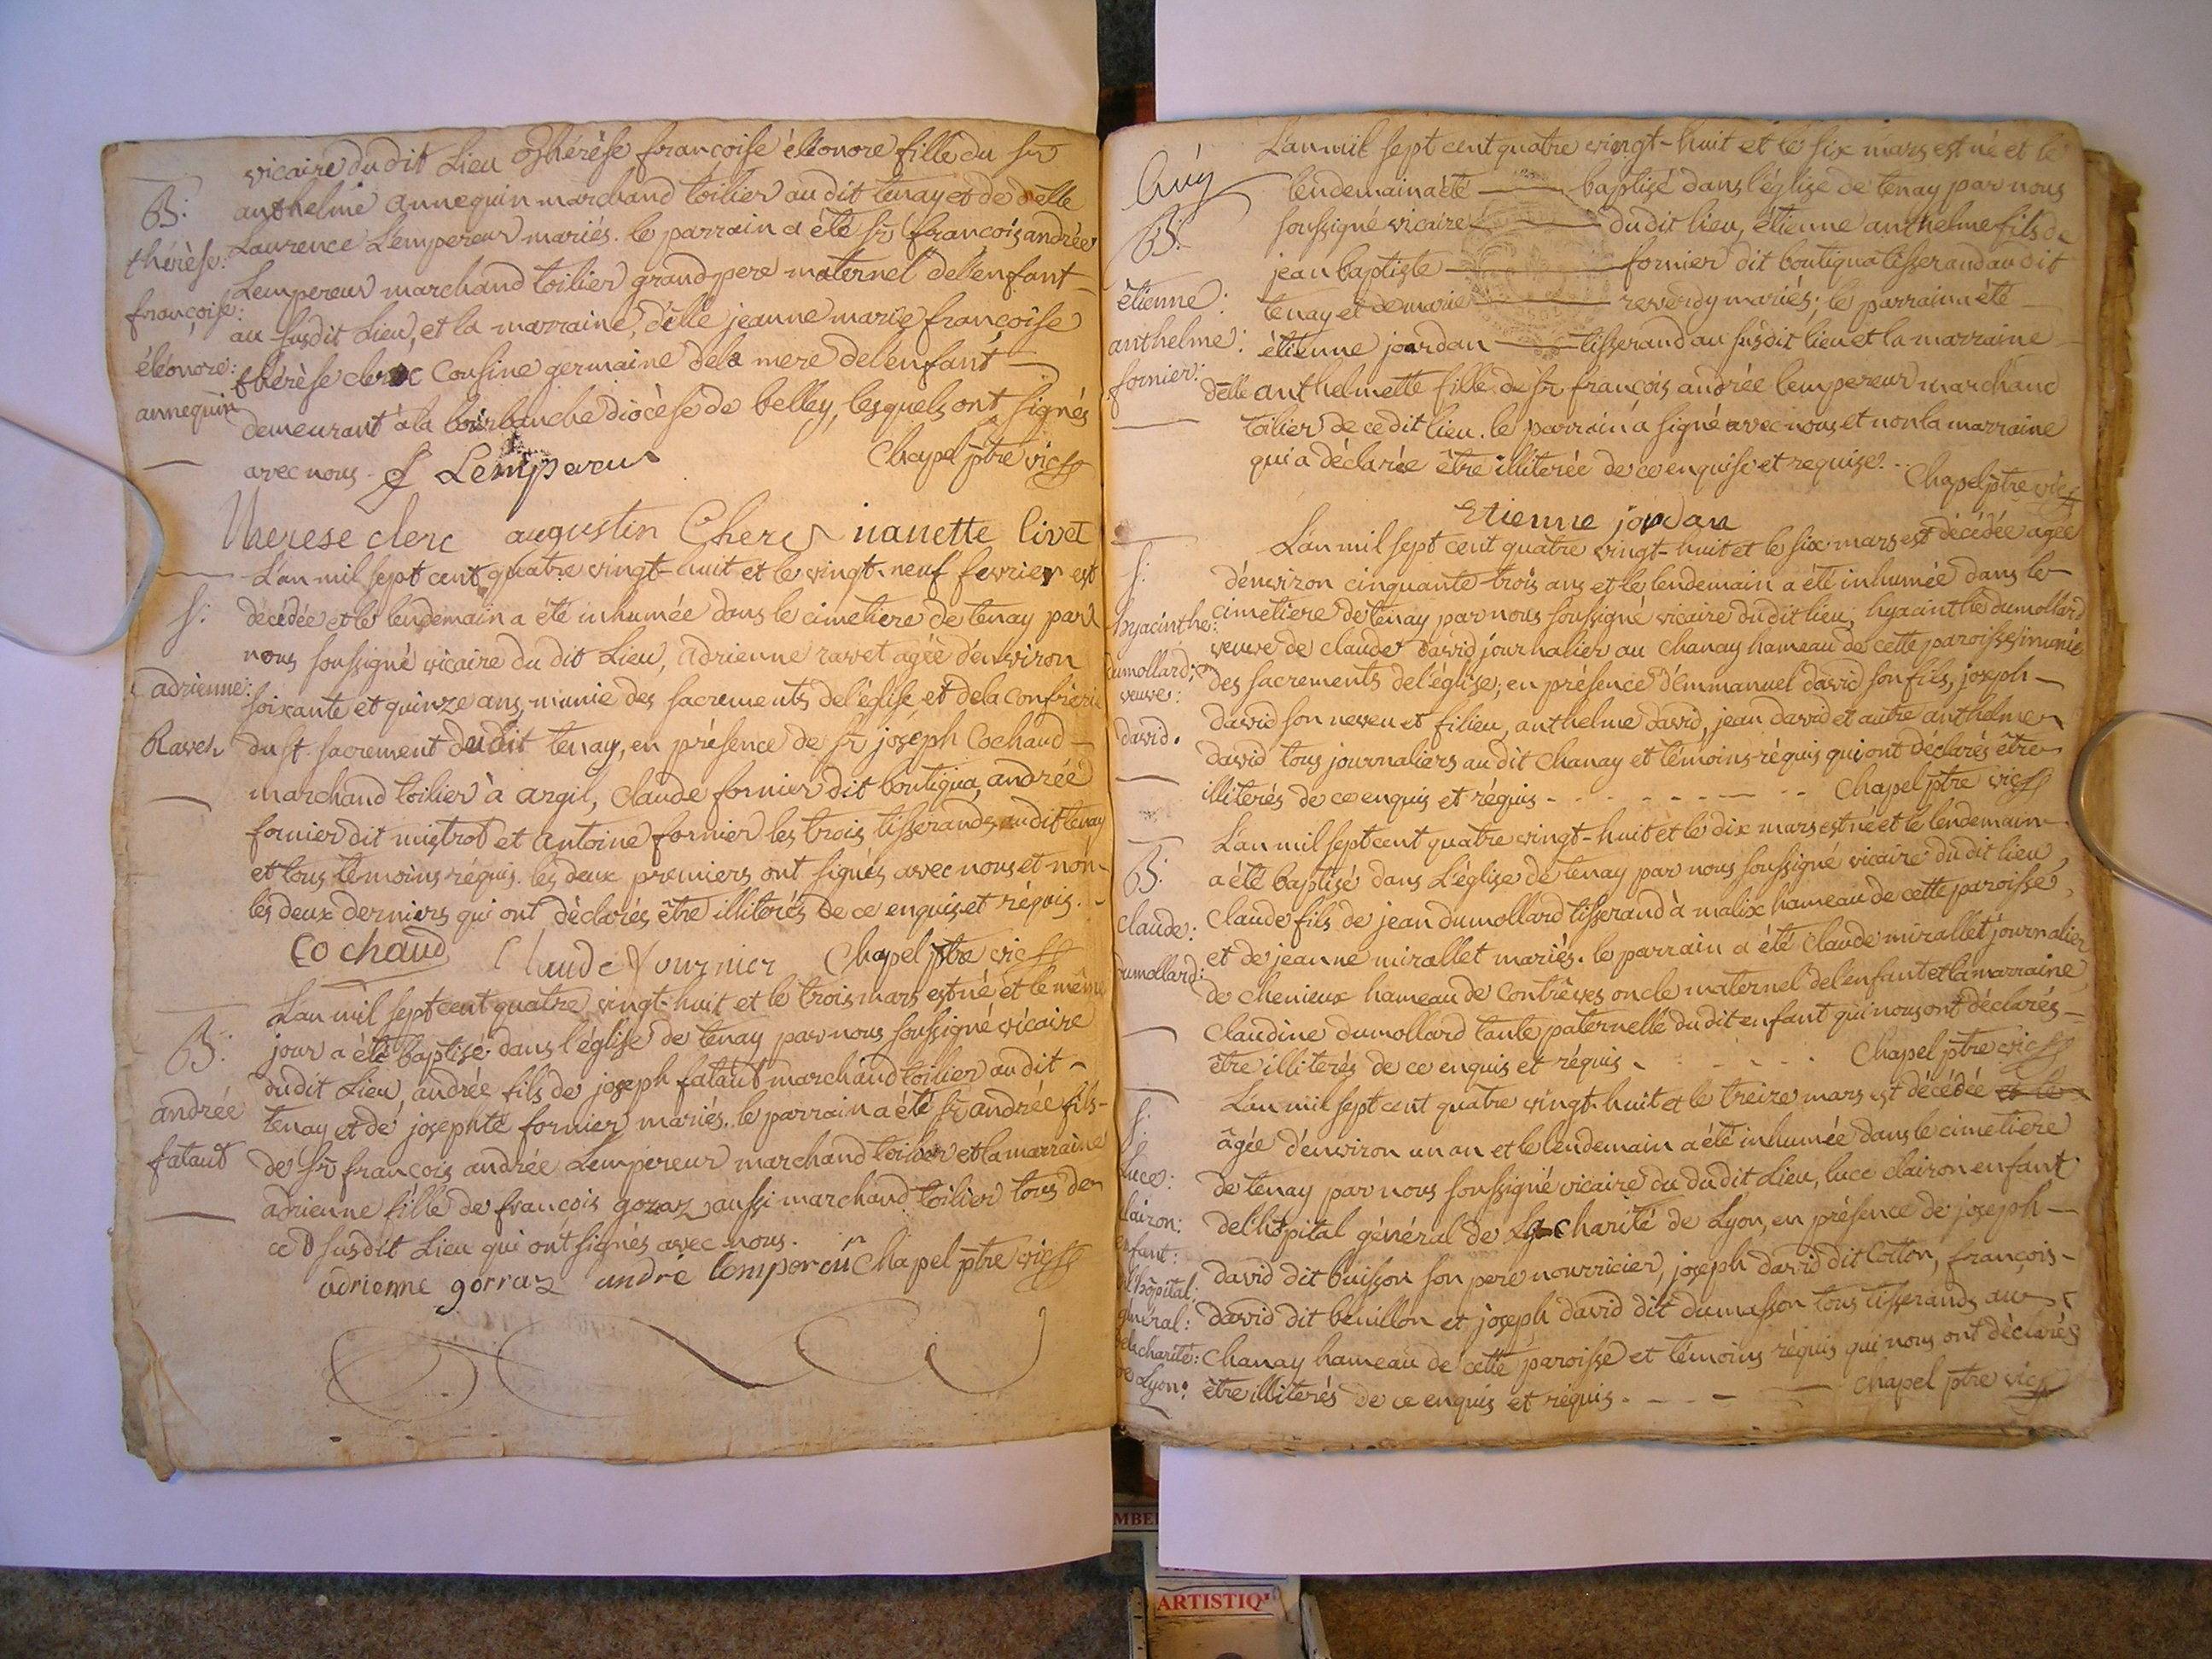 vicaire du dit Lieu thérèse françoise éléonore fille du sr
B:
anthelme annequin marchand toilier au dit tenay et de delle
thérèse:
Laurence L'empereur mariés. le parrain a été sr françois andrée
Lempereur marchand toilier grand-pere maternel de l'enfant
françoise:
au susdit Lieu, et la marraine, delle jeanne marie françoise
éléonore:
thérèse clerc Cousine germaine de la mere de l'enfant
annequin
demeurant à la burbanche diocèse de belley, lesquels ont signés
avec nous. f Lempereur Chapel ptre vic
Therese clerc augustin Cherc nanette livet
L'an mil sept cent quatre vingt-huit et le vingt-neuf fevrier est
S:
décédée et le lendemain a été inhumée dans le cimetiere de tenay par
nous soussigné vicaire du dit Lieu, adrienne ravet agée d'environ
adrienne:
soixante et quinze ans, munie des sacrements de l'église et de la confrérie
Ravet
du st. sacrement du dit tenay, en présence de sr joséph Cochaud
marchand toilier à argil, Claude fornier dit boutiqua, andrée
fornier dit mistrot et antoine fornier les trois tisserands au dit tenay
et tous témoins réquis. les deux premiers ont signés avec nous et non
les deux derniers qui ont déclarés être illiterés de ce enquis et réquis.
Cochaud Claude fournier Chapel ptre vic
L'an mil sept cent quatre vingt-huit et le trois mars est né et le même
B:
jour a été baptisé dans l'église de tenay par nous soussigné vicaire
du dit Lieu, andrée fils de joseph fataut marchand toilier au dit
andrée
tenay et de josephte fornier mariés. le parrain a été sr andrée fils
fataut
de sr françois andrée Lempereur marchand toilier et la marraine
adrienne fille de françois goraz aussi marchand toilier tous de
ce susdit Lieu qui ont signés avec nous.
adrienne gorraz andré lempereur Chapel ptre vic
L'an mil sept cent quatre vingt-huit et le six mars est né et le
lendemain a été baptisé dans l'église de tenay par nous
B:
soussigné vicaire du dit lieu, étienne anthelme fils de
jean baptiste fornier dit boutiqua tisserand au dit
étienne:
tenay et de marie reverdy mariés; le parrain a été
anthelme:
étienne jourdan tisserand au susdit lieu et la marraine
fornier:
delle anthelmette fille du sr françois andrée lempereur marchand
toilier de ce dit lieu. le parrain a signé avec nous et non la marraine
qui a déclarée être illiterée de ce enquise et requise. Chapel ptre vic
Etienne jourdan
L'an mil sept cent quatre vingt-huit et le six mars est décédée agée
S:
d'environ cinquante-trois ans et le lendemain a été inhumée dans le
hyacinthe:
cimetiere de tenay par nous soussigné vicaire du dit lieu, hyacinthe dumollard
dumollard:
veuve de claude david journalier au Chanay hameau de cette paroisse; munie
veuve:
des sacrements de l'église; en présence d'Emmanuel david son fils, joseph
david.
david son neveu et filieu, anthelme david, jean david et autre anthelme
david tous journaliers au dit Chanay et témoins réquis qui ont déclarés être
illiterés de ce enquis et réquis - Chapel ptre vic
L'an mil sept cent quatre vingt-huit et le dix mars est né et le lendemain
B:
a été baptisé dans L'église de tenay par nous soussigné vicaire du dit lieu
Claude:
Claude fils de jean dumollard tisserand à malix hameau de cette paroisse,
dumollard:
et de jeanne mirallet mariés. le parrain a été Claude mirallet journalier
de Chenieux hameau de Contrêves oncle maternel de l'enfant et la marraine
Claudine dumollard tante paternelle du dit enfant qui nous ont déclarés
être illiterés de ce enquis et réquis - Chapel ptre vic
L'an mil sept cent quatre vingt-huit et le treize mars est décédée et le
S:
âgée d'environ un an et le lendemain a été inhumée dans le cimetiere
Luce:
de tenay par nous soussigné vicaire du du dit Lieu, luce clairon enfant
clairon:
de l'hôpital général de La charité de Lyon, en présence de joseph
enfant:
david dit buisson son pere nourricier, joseph david dit toiton, françois
l'hôpital:
général:
david dit benillon et joseph david dit dumasson tous tisserands au
de la charité:
Chanay hameau de cette paroisse et témoins réquis qui nous ont déclarés
de Lyon:
être illiterés de ce enquis et réquis. Chapel ptre vic
ARTISTIQ